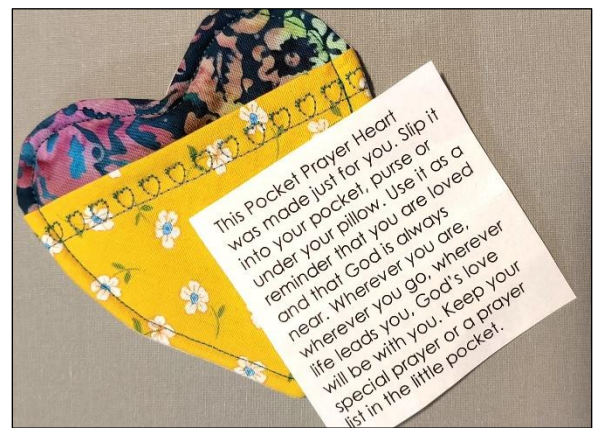 This Pocket Prayer Heart
was made just for you. Slip it
into your pocket, purse or
under your pillow. Use it as a
reminder that you are loved
and that God is always
near. Wherever you are,
wherever you go, wherever
life leads you, God's love
will be with you. Keep your
special prayer or a prayer
list in the little pocket.